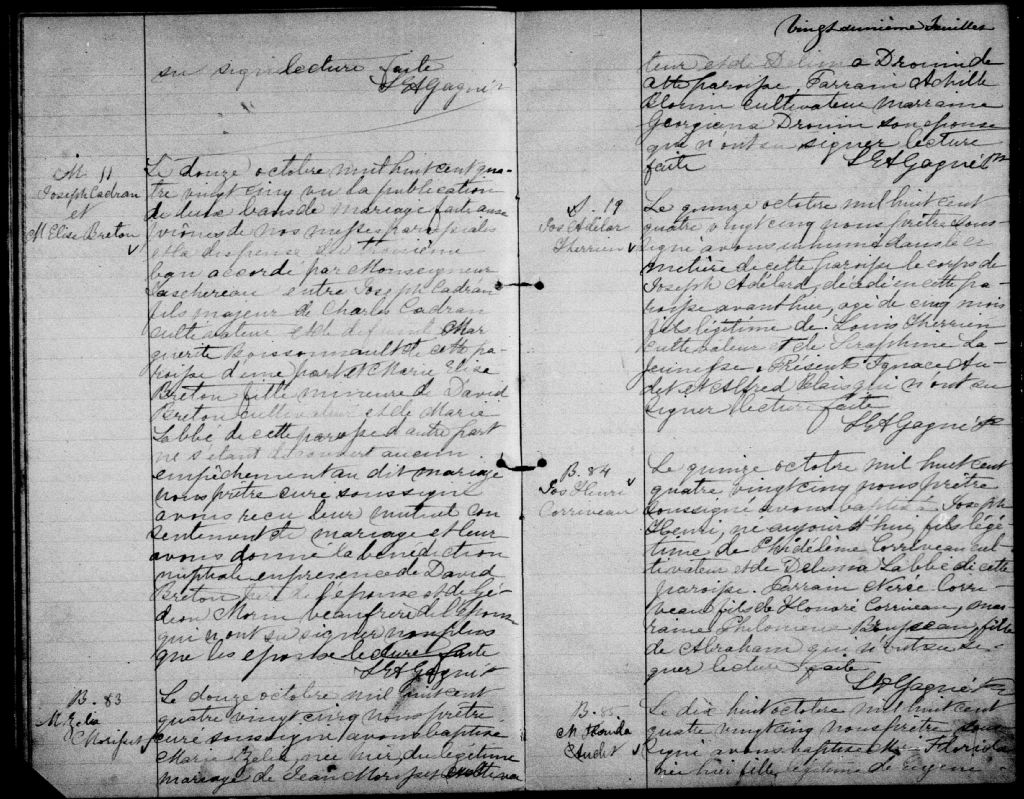 su signer lecture faite
L E A Gagné Ptr
M. 11
Joseph Cadran
et
M Elise Breton
Le douze octobre mil huit cent qua-
tre vingt cinq vu la publication
de deux bans de mariage faite aux
prônes de nos messes paroissiales
et la dispense du troisième
ban accordé par Monseigneur
Taschereau entre Joseph Cadran
fils majeur de Charles Cadran
cultivateur et de defunte Mar
guerite Boissonnault de cette pa-
roisse d'une part et Marie Elise
Breton fille mineure de David
Breton cultivateur et de Marie
Labbé de cette paroisse d'autre part
ne s'étant découvert aucun
empêchement au dit mariage
nous prêtre curé soussigné
avons reçu leur mutuel con
sentement de mariage et leur
avons donné la bénédiction
nuptiale en presence de David
Breton père de l'épouse et de Gé-
déon Morin beaufrère de l'époux
qui n'ont su signer non plus
que les epoux lecture faite
L E A Gagné Ptr
B. 83
M. Zelia
Morisset
Le douze octobre mil huit cent
quatre vingt cinq nous prêtre
curé soussigné avons baptisé
Marie Zelia, née hier, du légitime
mariage de Jean Morisset cultiva
Vingt deuxième Feuillet
teur et de Delima Drouin de
cette paroisse, Parrain Achille
Blouin cultivateur marraine
Georgiana Drouin son epouse
qui n'ont su signer lecture
faite L E A Gagné Ptr
S. 19
Jos Adélar
Therrien
Le quinze octobre mil huit cent
quatre vingt cinq nous prêtre sous-
signé avons inhumé dans le ci
metière de cette paroisse le corps de
Joseph Adélard, décédé en cette pa-
roisse avant hier, agé de cinq mois
fils légitime de Louis Therrien
cultivateur et de Seraphine La-
jeunesse. Présent Ignace Au-
det et Alfred Blais qui n'ont su
signer lecture faite
L E A Gagné Ptr
B. 84
Jos Henri
Corriveau
Le quinze octobre mil huit cent
quatre vingt cinq nous prêtre
soussigné avons baptisé Joseph
Henri, né aujourd'hui, fils légi-
time de Phidélème Corriveau cul-
tivateur et de Delessia Labbé de cette
paroisse. Parrain Nérée Corri-
veau fils de Honoré Corriveau, mar-
raine Philomene fille
de Abraham qui n'ont su si-
gner lecture faite
L E A Gagné Ptr
B. 85
M. Florida
Audet
Le dix huit octobre mil huit cent
quatre vingt cinq nous prêtre sous
signé avons baptisé Mie Florida
née hier fille légitime de Eugène